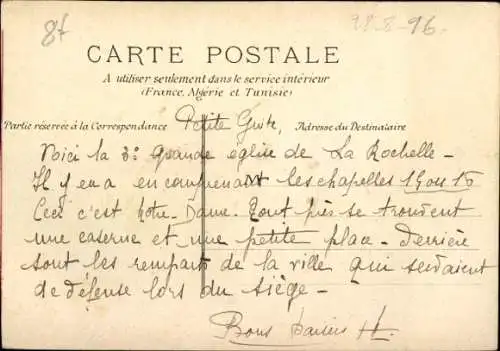 87
28.8-96.
CARTE POSTALE
A utiliser seulement dans le service intérieur
(France, Algérie et Tunisie)
Partie réservée à la Correspondance
Adresse du Destinataire
Petite Guite,
Voici la 3e Grande église de La Rochelle -
Il y en a en comprenant les chapelles 14 ou 15
Ceci c'est Notre-Dame. Tout près se trouvent
une caserne et une petite place - Derrière
sont les remparts de la ville qui servaient
de défense lors du siège -
Bons baisers H.